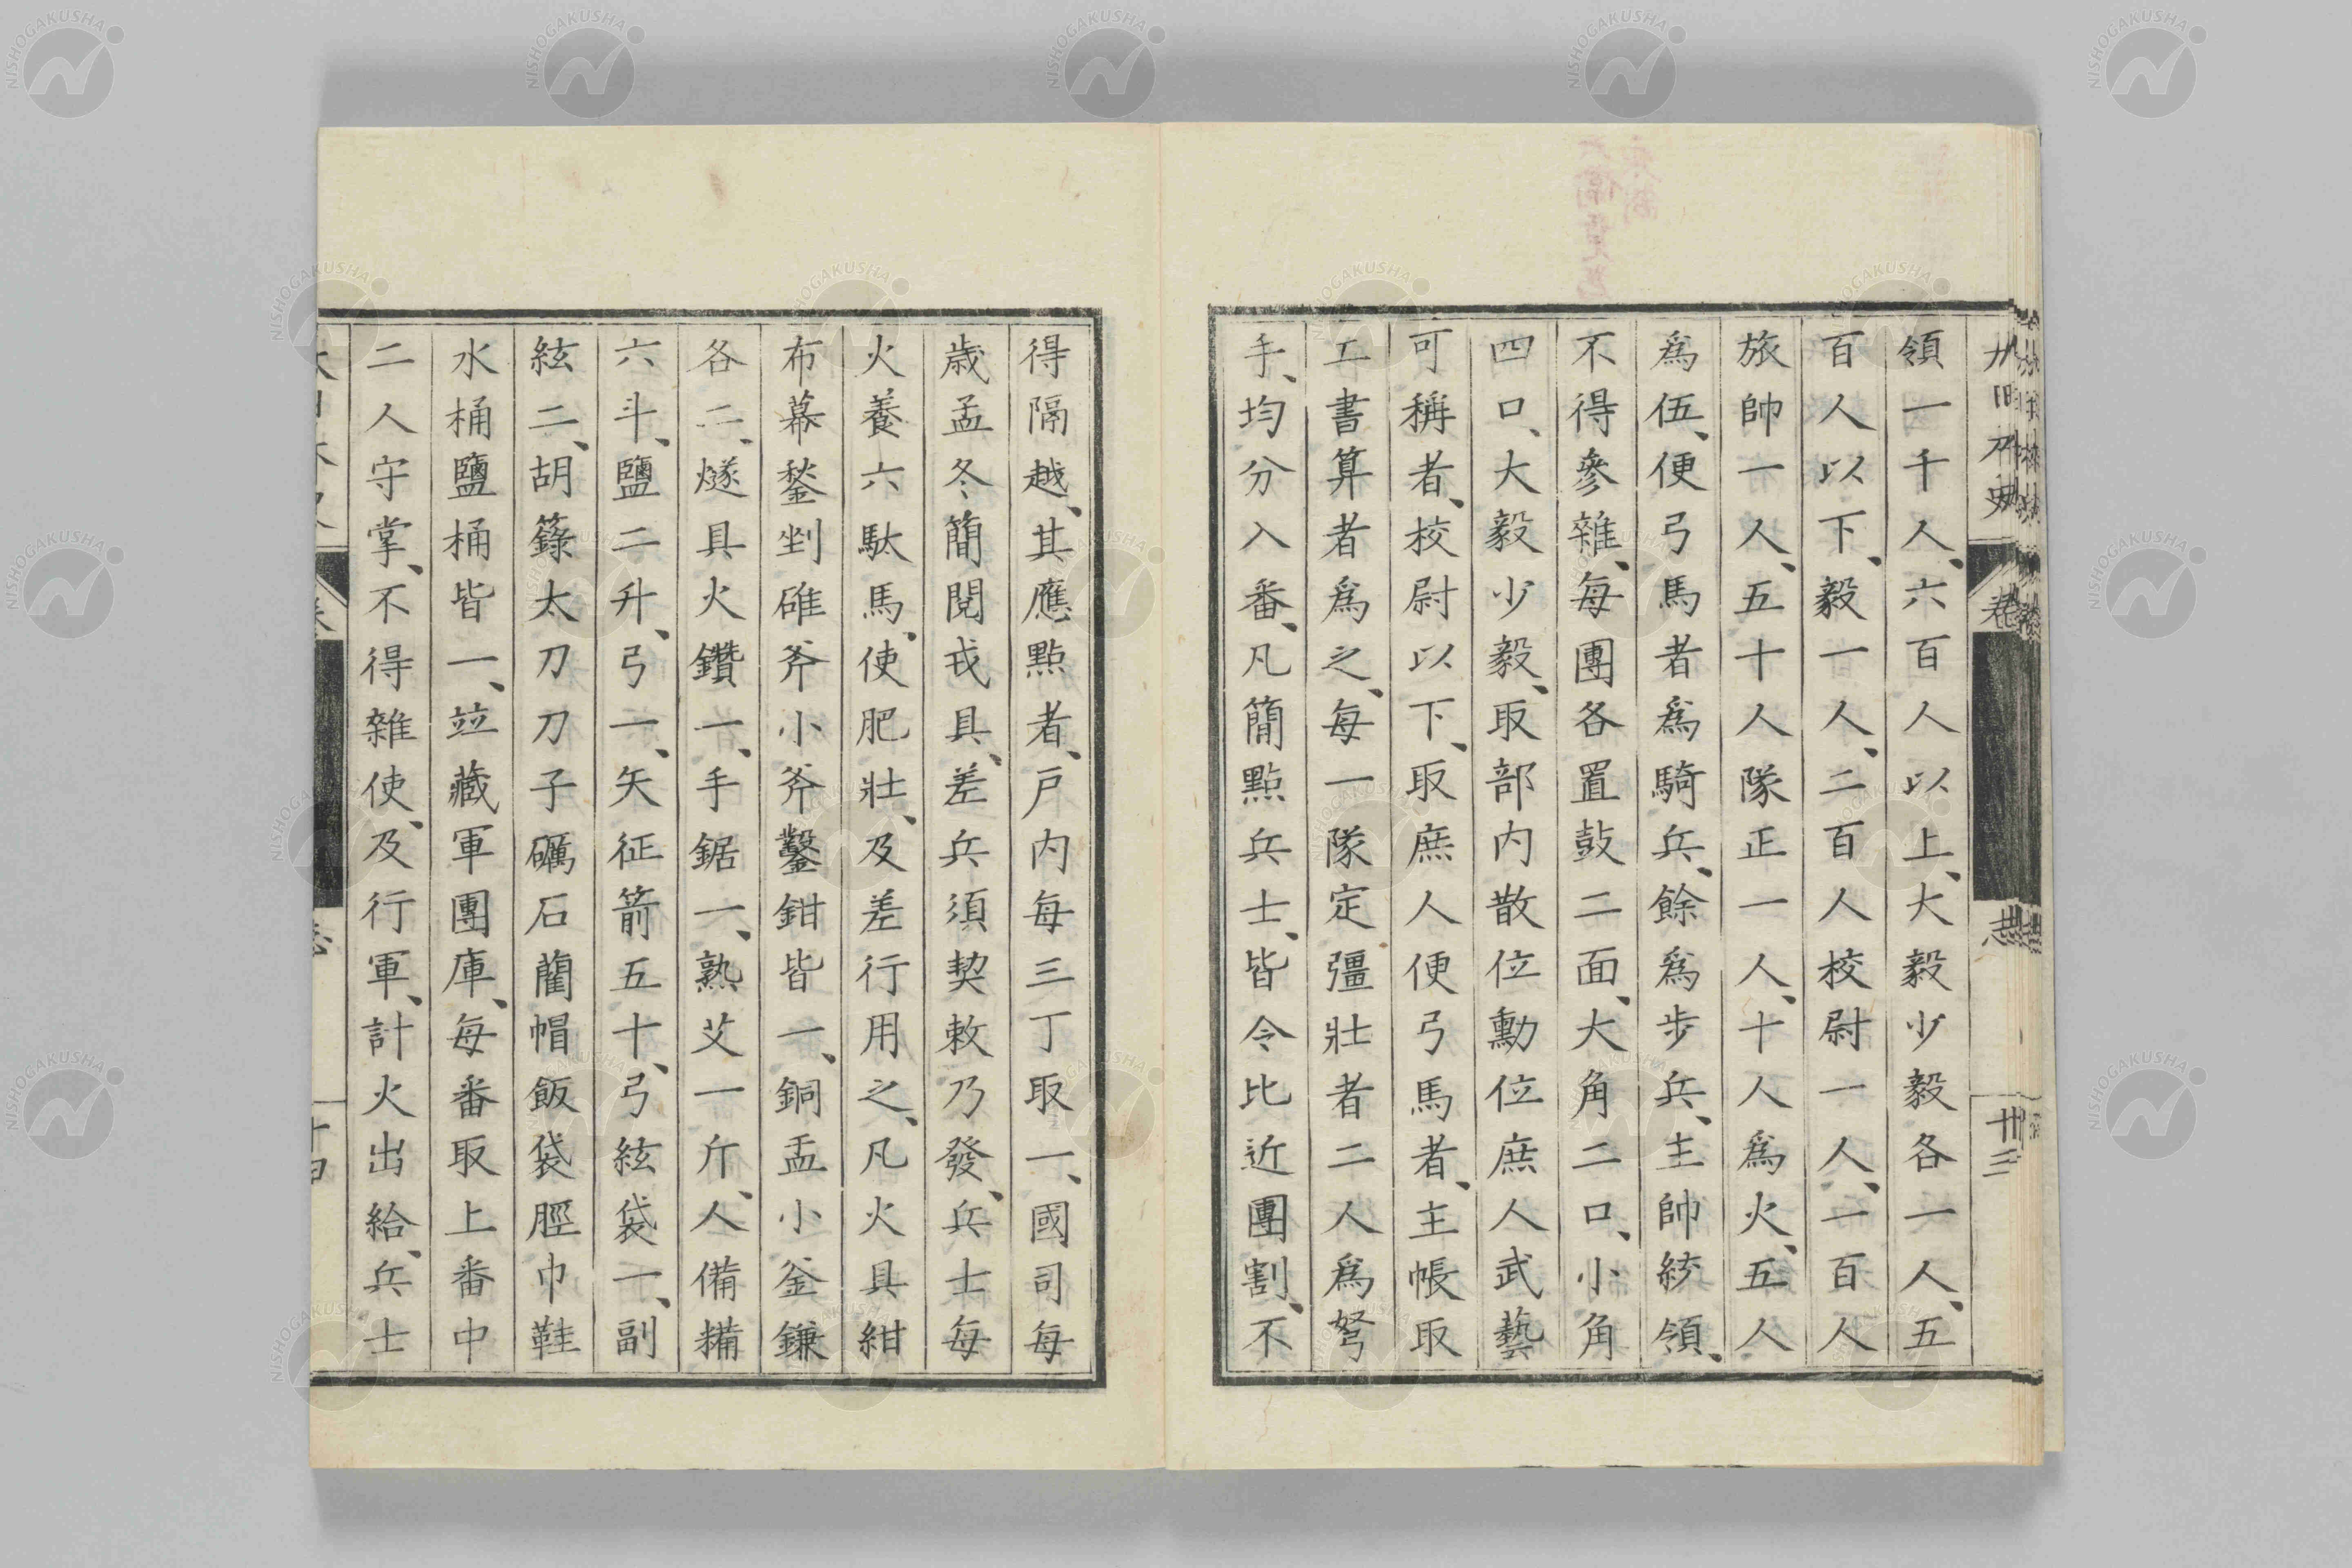 領一千人、六百人以上、大毅少毅各一人、五
百人以下、毅一人、二百人校尉一人、一百人
旅帥一人、五十人隊正一人、十人爲火、五人
爲伍、便弓馬者爲騎兵、餘爲步兵、主帥統領、
不得參雜、每團各置鼓二面、大角二口、小角
四口、大毅少毅、取部内散位勳位庶人武藝
可稱者、校尉以下、取庶人便弓馬者、主帳取
工書算者爲之、每一隊定彊壯者二人爲弩
手、均分入番、凡簡點兵士、皆令比近團割、不
得隔越、其應點者、戸内每三丁取一、國司每
歳孟冬簡閱戎具、差兵須契敕乃發、兵士每
火養六駄馬、使肥壯、及差行用之、凡火具紺
布幕鍫剉碓斧小斧鑿鉗皆一、銅盂小釜鎌
各二、燧具火鑽一、手鋸一、熟艾一斤、人備糒
六斗、鹽二升、弓一、矢征箭五十、弓絃袋一、副
絃二、胡籙太刀刀子礪石藺帽飯袋脛巾鞋
水桶鹽桶皆一、竝藏軍團庫、每番取上番中
二人守掌、不得雜使、及行軍、計火出給、兵士
卷
志
廿三
NISHOGAKUSHA